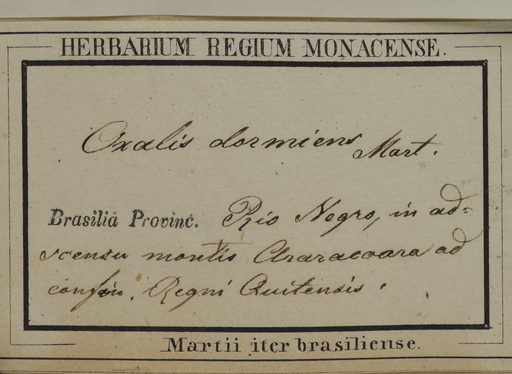 HERBARIUM REGIUM MONACENSE.
Oxalis dormiens Mart.
Brasilia Provinc. Rio Negro, in ad-
scensu montis Araracoara ad
confin. Regni Quitensis.
Martii iter brasiliense.